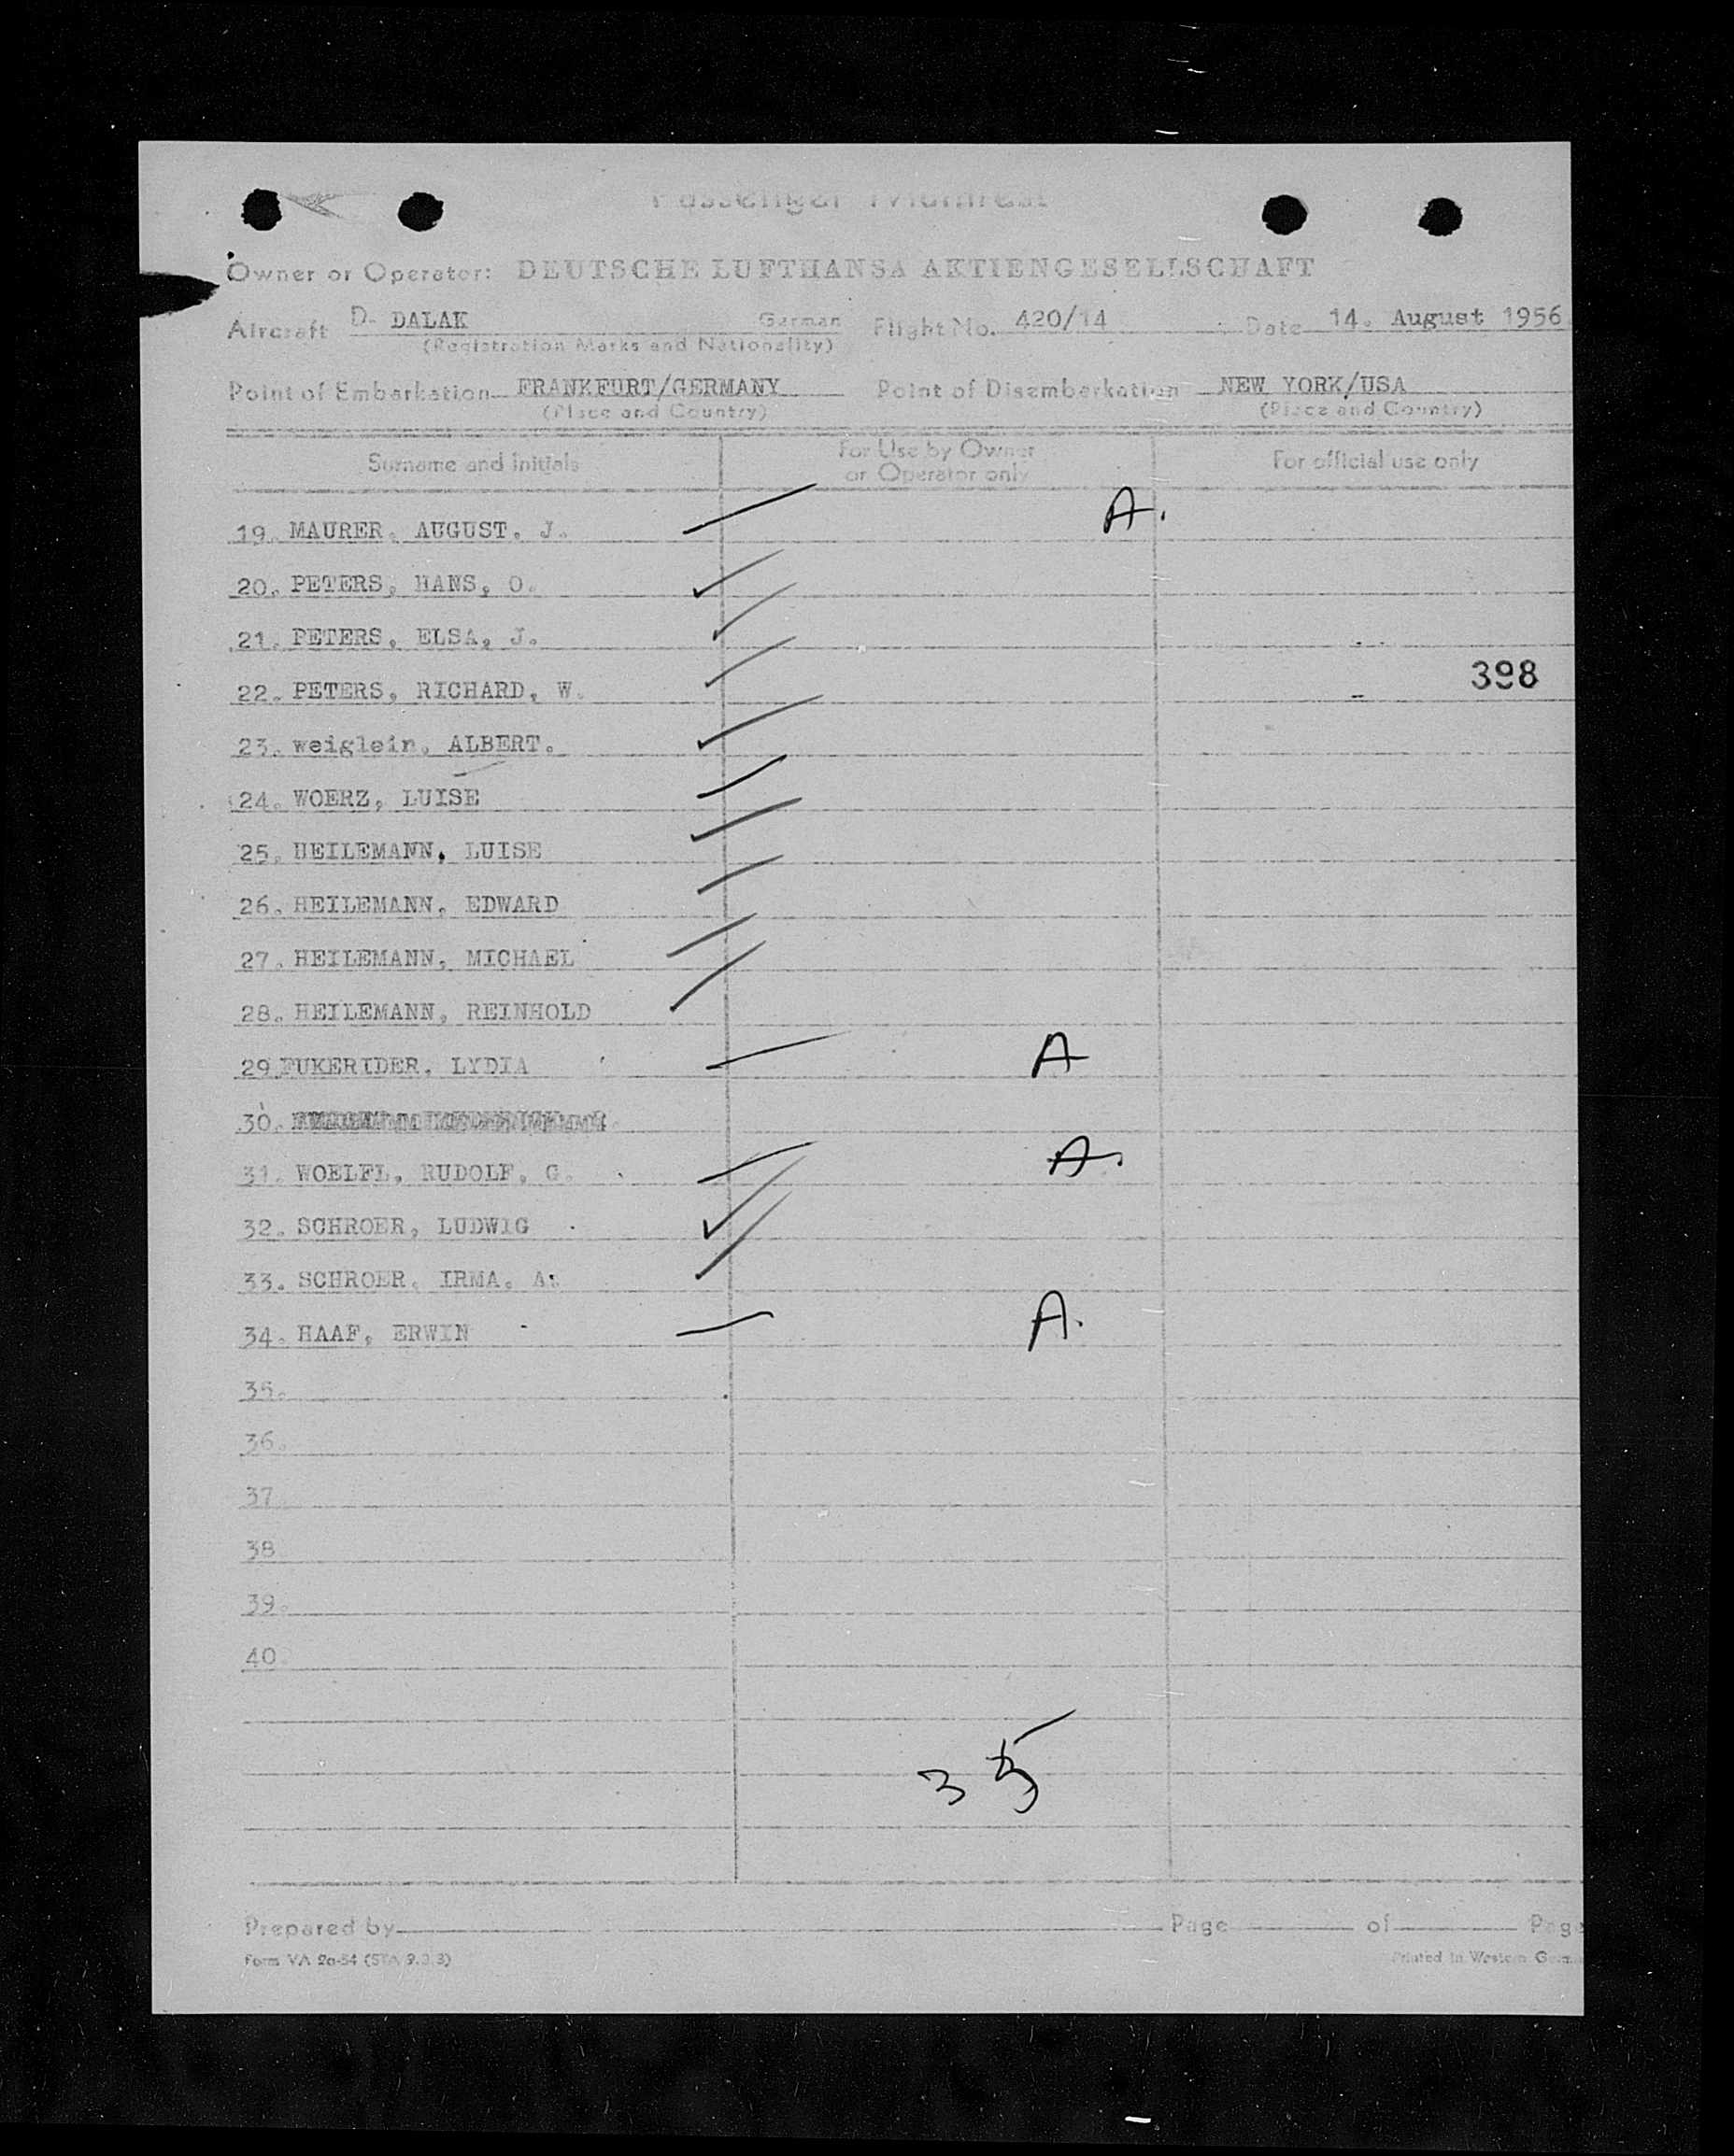 Passenger Manifest
Owner or Operator: DEUTSCHE LUFTHANSA AKTIENGESELLSCHAFT
Aircraft D- DALAK German Flight No. 420/14 Date 14. August 1956
(Registration Marks and Nationality)
Point of Embarkation FRANKFURT/GERMANY Point of Disembarkation NEW YORK/USA
(Place and Country) (Place and Country)
Surname and initials For Use by Owner or Operator only For official use only
19. MAURER, AUGUST, J. A.
20. PETERS, HANS, O.
21. PETERS, ELSA, J.
398
22. PETERS, RICHARD, W.
23. weiglein, ALBERT.
24. WOERZ, LUISE
25. HEILEMANN, LUISE
26. HEILEMANN, EDWARD
27. HEILEMANN, MICHAEL
28. HEILEMANN, REINHOLD
29 FUKERIDER, LYDIA A
30.
31. WOELFL, RUDOLF, G. A.
32. SCHROER, LUDWIG
33. SCHROER, IRMA, A.
34. HAAF, ERWIN A.
35.
36.
37
38
39.
40
35
Prepared by Page of Page
Form VA 2a-54 (STA 9.3.3) Printed in Western